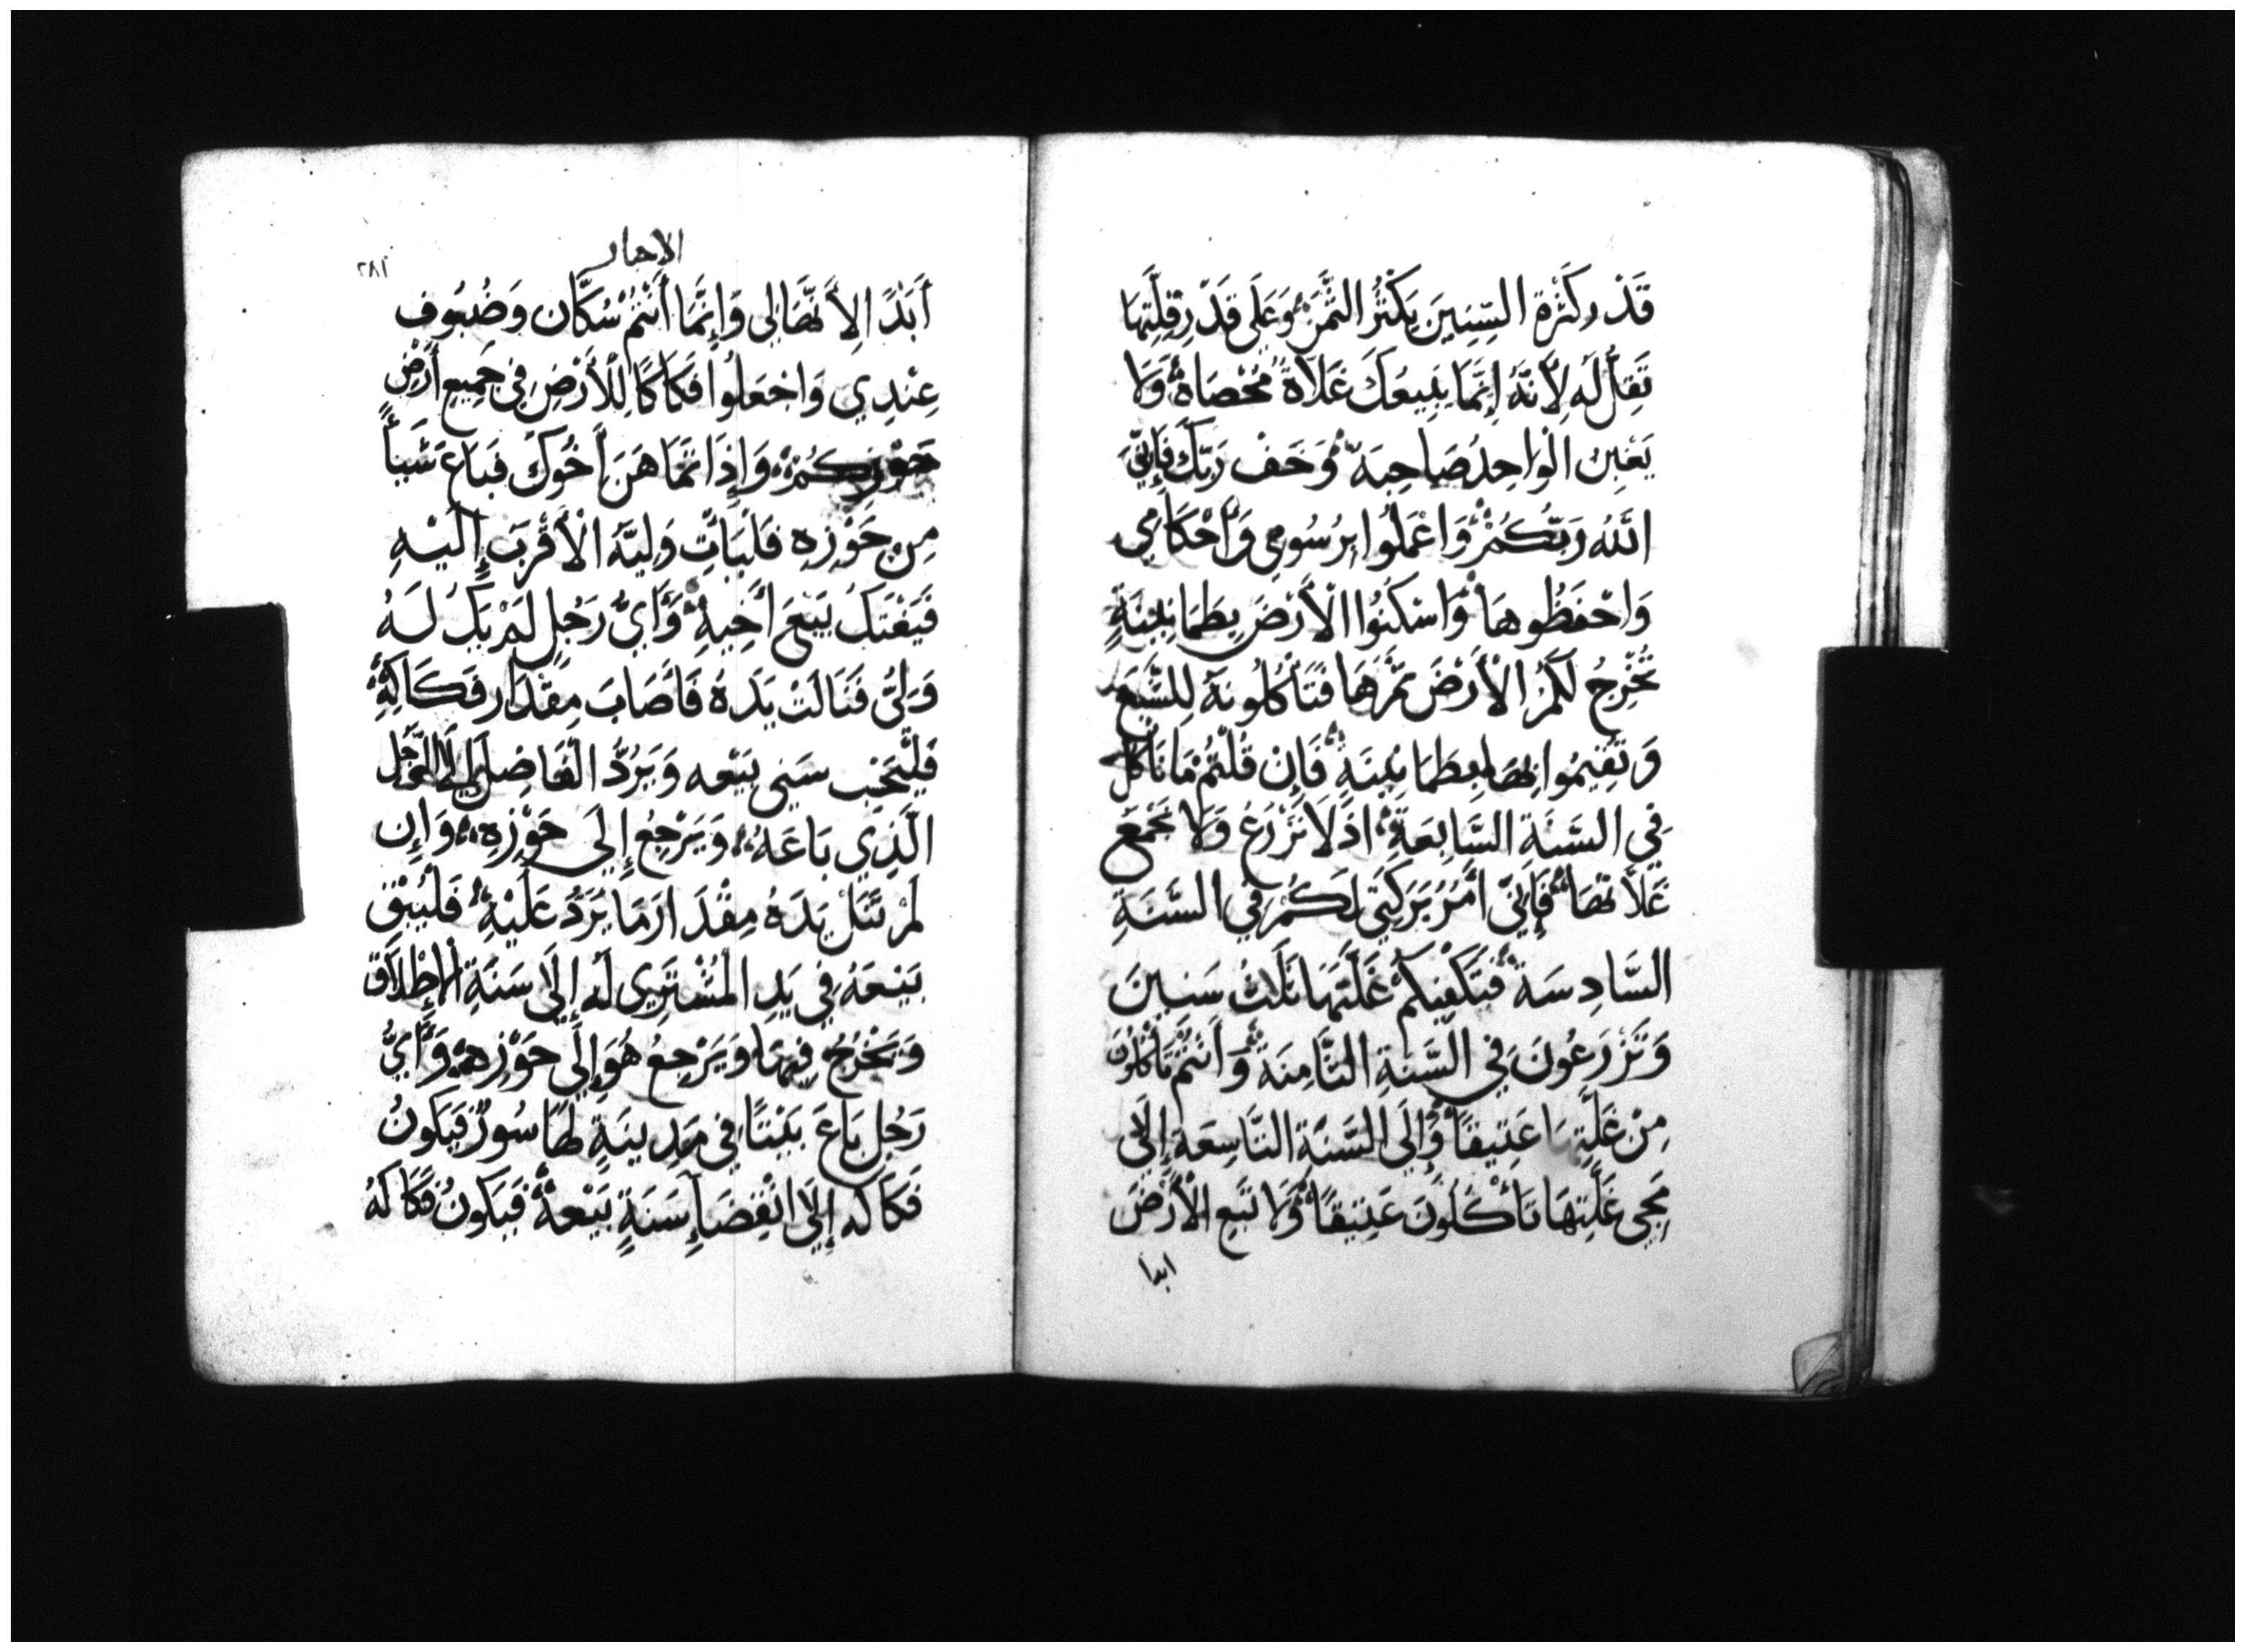 قَدْر كَثْرة السِّنِينَ يَكْثُرُ الثَّمَنُ وَعَلَى قَدْرِ قِلَّتِهَا
تَقِلُّ لَه لِأَنَّهُ إِنَّمَا يَبِيعَكَ غَلاَّةً مُحْصَاهُ وَلَا
يَغْبِن الْوَاحِدُ صَاحِبَهُ وَخَفْ رَبَّكَ فَإِنِّيَ
اللهُ رَبُّكُمْ وَاعْمَلُوا بِرُسُومِي وَأَحْكَامِي
وَاحْفَظُوهَا وَاسْكُنُوا الْأَرْضَ بِطَمَانِيْنَةٍ
تُخْرِجُ لَكُمُ الْأَرْضَ ثَمَرَهَا فَتَأْكُلُونَهُ لِلشَّبَع
وَتُقِيمُوا بِهَا بِطَمَانِيْنَةٍ فَإِنْ قُلْتُمْ مَا نَأكُل
فِي السَّنَةِ السَّابِعَةِ اذْ لَا نَزْرَعُ وَلَا نَجْمَعُ
غَلاَّتهَا فَإِنِّي أَمُرُ بَرَكَتِي لَكُمْ فِي السَّنَةِ
السَّادِسَة فَتَكْفِيكُمْ غَلَّتَهَا ثَلَثُ سَنِينَ
وَتَزْرَعُونَ فِي السَّنَةِ الثَّامِنَة وَأَنْتُمْ تَأكُلُونَ
مِنْ غَلَّتِهَا عَتِيقًا وَإِلَى السَّنَةِ التَّاسِعَةِ إِلَى
مَجِي غَلَّتِهَا تَأْكُلُونَ عَتِيقًا وَلَا تَبِعِ الْأَرْضَ
ابدا
الاحبار
١٨٢
أَبَدًا لِأَنَّهَا لِي وَإِنَّمَا أَنْتُمْ سُكَّان وَضُيُوف
عِنْدِي وَاجْعَلُوا فَكَاكًا لِلْأَرْضِ فِي جَمِيعِ أَرْضِ
حَوْزِكُمْ وَإِذَا تَمَاهَنَ أَخُوكَ فَبَاعَ شَيْأً
مِن حَوْزِه فَلْيَأْتِ وَلِيَّهُ الْأَقْرَبَ إِلَيْهِ
فَيَفْتَكُ بَيْعَ أَخِيهِ وَأَيُّ رَجُلٍ لَمْ يَكُ لَهُ
وَلِيُّ فَنَالَتْ يَدَهُ فَأَصَابَ مِقْدَار فَكَاكِهِ
فَلْيَحْسِب سَنِي بَيْعه وَيَرُدُّ الْفَاضِل إِلَى الرَّجُل
الَّذِي بَاعَهُ وَيَرْجِعُ إِلَى حَوْزِهِ وَإِن
لَمْ تَنَلْ يَدَهُ مِقْدَار مَا يَرُدُّ عَلَيْهِ فَلْيُبْقِ
بَيْعَهُ فِي يَدِ الْمُشْتَرِي لَه إِلَى سَنَةِ الْإِطْلَاق
وَيَخْرُجُ فِيهَا وَيَرْجِعُ هُوَ إِلَى حَوْزِهِ وَأَيُّ
رَجُل بَاعَ بَيْتًا فِي مَدِينَةٍ لَهَا سُورٌ فَيَكُونُ
فَكَاكه إِلَى انْقِضَاءِ سَنَةٍ بَيْعهُ فَيَكُونُ فَكَاكَهُ